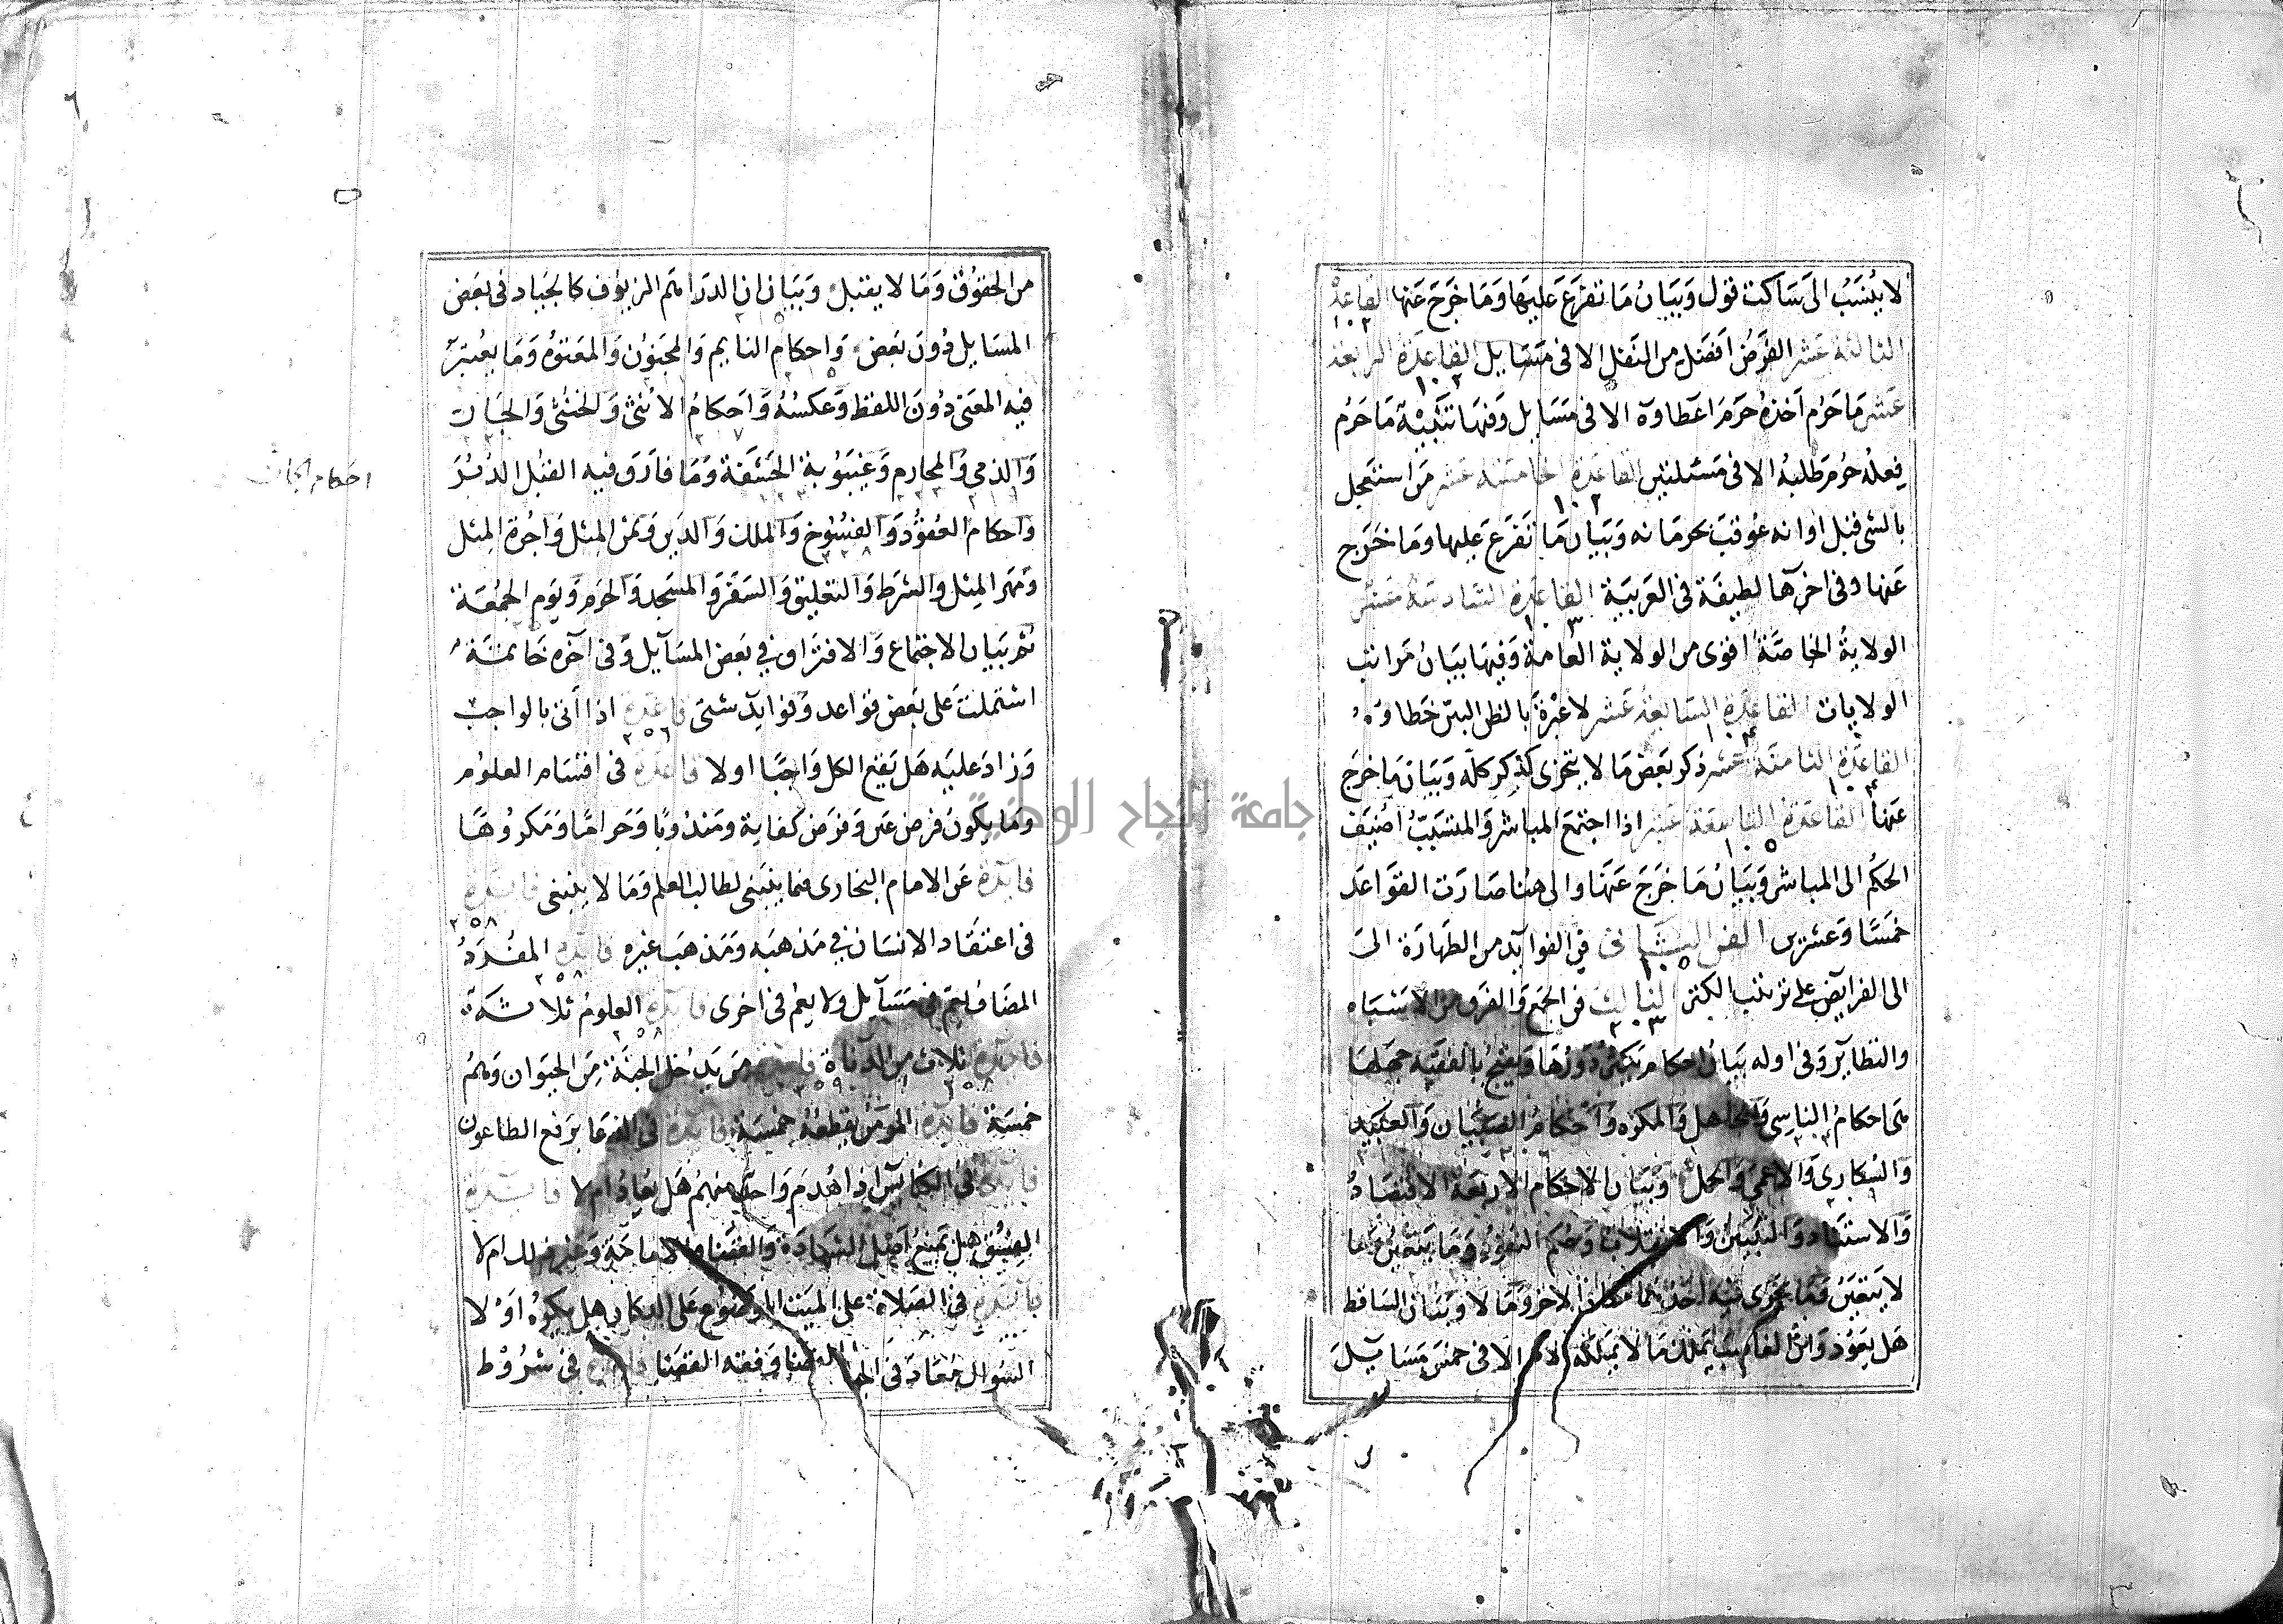 لا ينسب الى ساكت قول وبيان ما تفرع عليها وما خرج عنها القاعدة
الثالثة عشر الفرض افضل من النفل الا فى مسايل القاعدة الرابعة
عشر ما حرم اخذه حرم اعطاوه الا فى مسايل وفيها تنبيه ما حرم
فعله حرم طلبه الا فى مسئلتين القاعدة الخامسة عشر من استعجل
بالشى قبل اوانه عوقب بحرمانه وبيان ما تفرع عليها وما خرج
عنها وفى اخرها لطيفة فى العربية القاعدة السادسة عشر
الولاية الخاصة اقوى من الولاية العامة وفيها بيان مراتب
الولايات القاعدة السابعة عشر لا عبرة بالظن البين خطاوه
القاعدة الثامنة عشر ذكر بعض ما لا يتجزى كذكر كله وبيان ما خرج
عنها القاعدة التاسعة عشر اذا اجتمع المباشر والمتسبب اضيف
الحكم الى المباشر وبيان ما خرج عنها والى هنا صارت القواعد
خمسا وعشرين الفن الثانى فن الفوايد من الطهارة الى
الى الفرايض على ترتيب الكنز الثالث فن الجمع والفرق من الاشباه
والنظاير وفى اوله بيان احكام يكثر دورها ويقبح بالفقيه جهلها
احكام الناسى والجاهل والمكره واحكام الصبيان والعبيد
والسكارى والاعمى والحمل وبيان الاحكام الاربعة الاقتصار
والاستناد والتبيين والانقلاب وحكم النقود وما يتعين فيها
لا يتعين وما يجرى فيه احدهما مكان الاخر وما لا وبيان الساقط
هل يعود وان القايم يملك ما لا يملكه الا فى خمس مسايل
من الحقوق وما لا يقبل وبيان ان الدراهم الزيوف كالجياد فى بعض
المسايل دون بعض واحكام النايم والمجنون والمعتوه وما يعتبر
فيه المعنى دون اللفظ وعكسه واحكام الانثى والخنثى والجان
والذمى والمحارم وغيبوبة الحشفة وما فارق فيه القبل الدبر
احكام الجان
واحكام العقود والفسوخ والملك والدين وثمن المثل واجرة المثل
ومهر المثل والشرط والتعليق والسفر والمسجد والحرم ويوم الجمعة
ثم بيان الاجتماع والافتراق في بعض المسايل وفى آخره خاتمة
اشتملت على بعض قواعد وفوايد شتى قاعدة اذا اتى بالواجب
وزاد عليه هل يقع الكل واجبا اولا قاعدة فى اقسام العلوم
وما يكون فرض عين وفرض كفاية ومندوبا وحراما ومكروها
فايدة عن الامام البخارى فيما ينبغى لطالب العلم وما لا ينبغى فايدة
فى اعتقاد الانسان في مذهبه ومذهب غيره فايدة المفرد
المضاف يعم فى مسايل ولا يعم فى اخرى فايدة العلوم ثلاثة
فايدة ثلاث من الدناة فايدة من يدخل الجنة من الحيوان وهم
خمسة فايدة المؤمن يقطعه خمسة فايدة فى الدعا برفع الطاعون
فايدة فى الكنايس اذا هدم واحد منهم هل يعاد ام لا فايدة
الفسق هل يمنع اهلية الشهادة والقضا والامامة وغير ذلك ام لا
فايدة فى الصلاة على الميت على الدكان هل يكره او لا
السوال معاد فى القضا وفقه القضا فى شروط
جامعة النجاح الوطنية